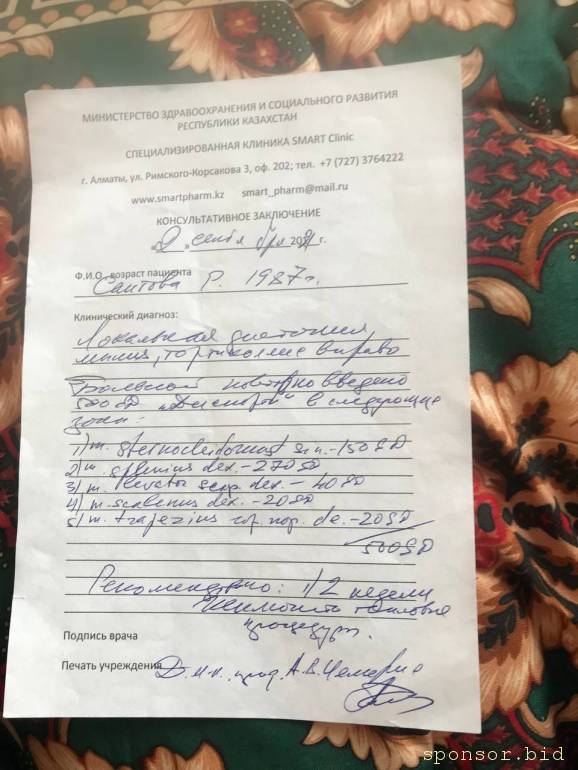 МИНИСТЕРСТВО ЗДРАВООХРАНЕНИЯ И СОЦИАЛЬНОГО РАЗВИТИЯ
РЕСПУБЛИКИ КАЗАХСТАН
СПЕЦИАЛИЗИРОВАННАЯ КЛИНИКА SMART Clinic
г. Алматы, ул. Римского-Корсакова 3, оф. 202; тел. +7 (727) 3764222
www.smartpharm.kz smart_pharm@mail.ru
КОНСУЛЬТАТИВНОЕ ЗАКЛЮЧЕНИЕ
сентября г.
Ф.И.О., возраст пациента
Саитова Р. 1987г.
Клинический диагноз:
Локальная дистония,
вправо
повторно введено
500 SD в следующие
зоны:
1) m. sin. - 150 SD
2) m. splenius dex. - 270 SD
3) m. levator scap. dex. - 40 SD
4) m. scalenus dex. - 20 SD
5) m. trapezius - 20 SD
500 SD
Рекомендовано: 1/2 недели
тепловые
процедуры.
Подпись врача
Печать учреждения Д.м.н., проф. А.В.
sponsor.bid